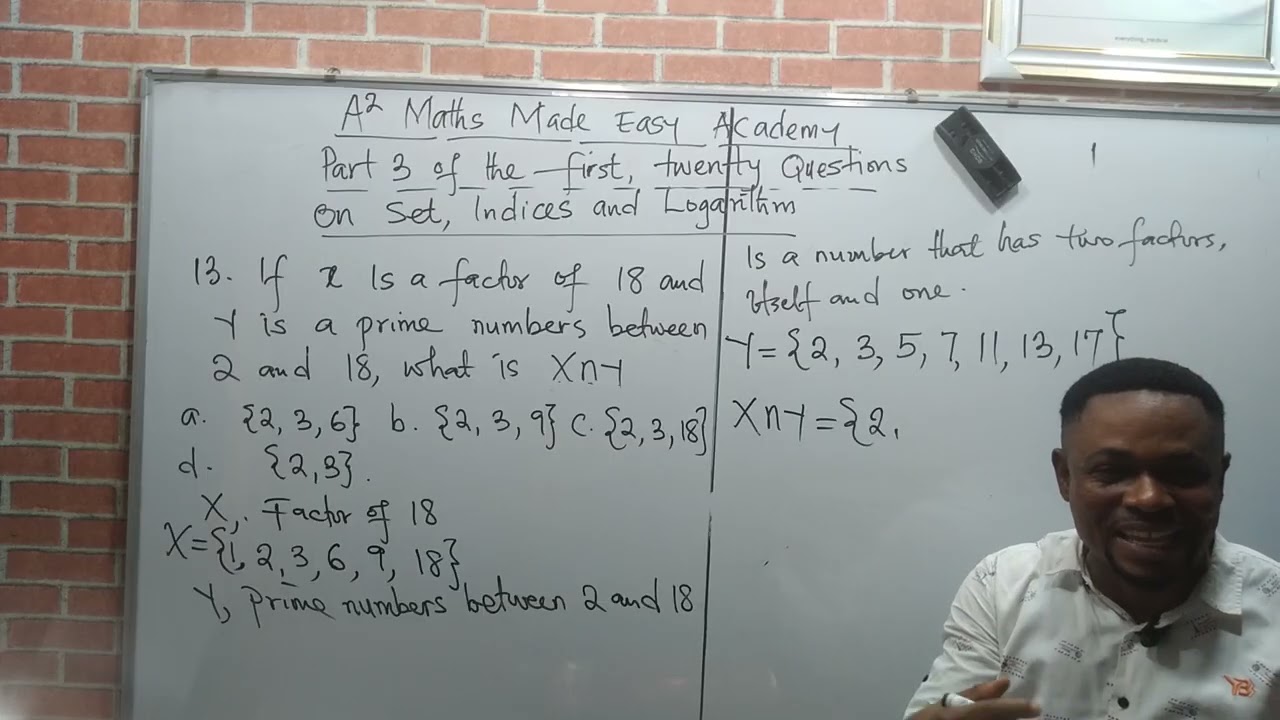 everything_medical
A² Maths Made Easy Academy
Part 3 of the first, twenty Questions
on Set, Indices and Logarithm
13. If x Is a factor of 18 and
Y is a prime numbers between
2 and 18, what is X∩Y
a. {2, 3, 6} b. {2, 3, 9} c. {2, 3, 18}
d. {2, 3}.
X, Factor of 18
X={1, 2, 3, 6, 9, 18}
Y, Prime numbers between 2 and 18
1
Is a number that has two factors,
itself and one.
Y={2, 3, 5, 7, 11, 13, 17}
X∩Y={2,